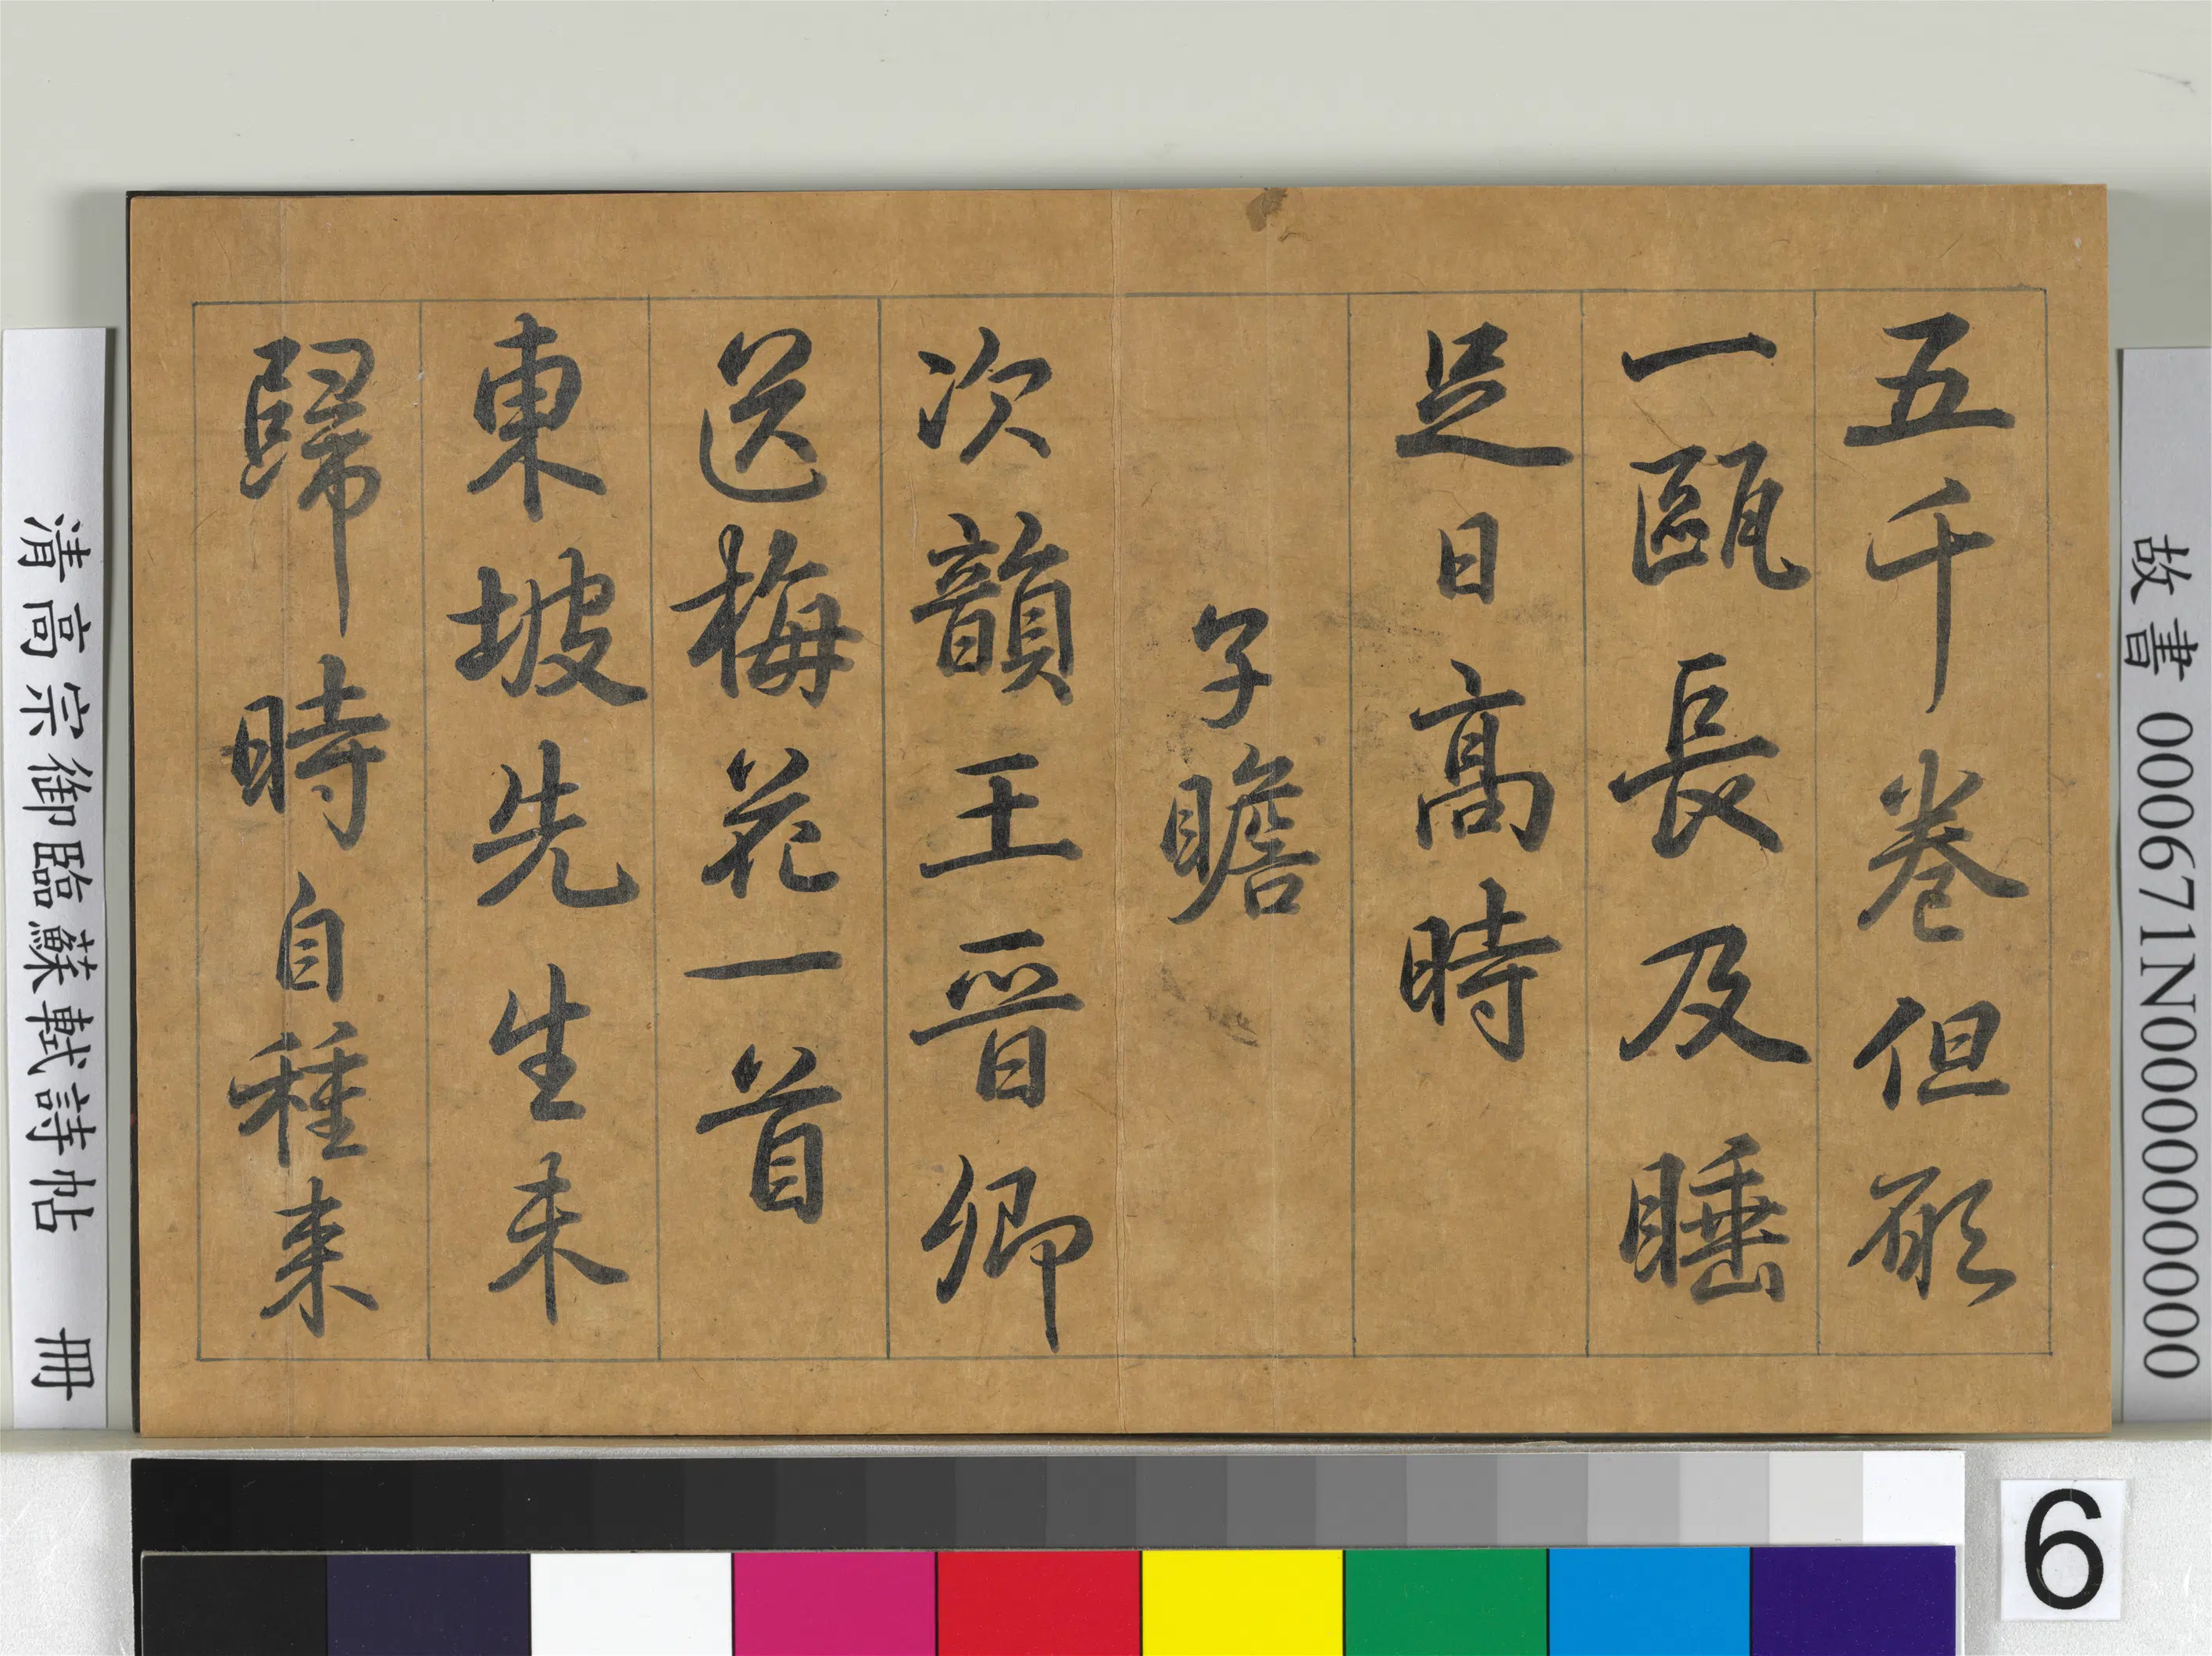 故書 000671N000000000
五千卷但願
一甌長及睡
足日髙時
子瞻
次韻王晋卿
送梅花一首
東坡先生未
歸時自種来
清高宗御臨蘇軾詩帖 冊
6